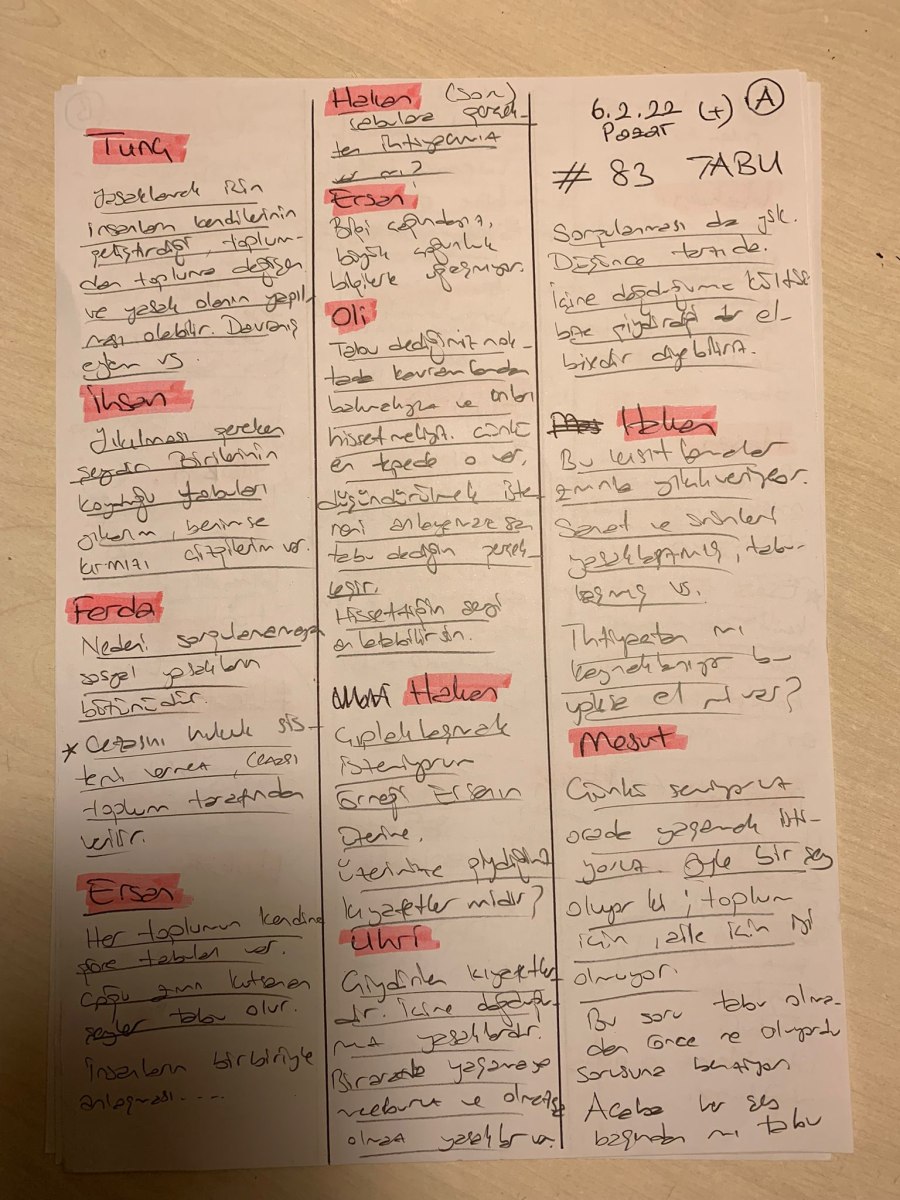 6.2.22 (+) A
Pazar
# 83 TABU
Tunç
Yasaklamak için
insanların kendilerinin
geliştirdiği, toplum-
dan topluma değişen
ve yasak olanın yapıl-
ması olabilir. Davranış
eylem vs.
İhsan
Yıkılması gereken
şeydir. Birilerinin
koyduğu tabuları
yıkarım, benimse
kırmızı çizgilerim var.
Ferda
Nedeni sorgulanamayan
sosyal yasakların
bütünüdür.
* Cezasını hukuk sis-
temi vermez, cezası
toplum tarafından
verilir.
Ersan
Her toplumun kendine
göre tabuları var.
Çoğu zaman kutsanan
şeyler tabu olur.
İnsanların birbiriyle
anlaşması....
Hakan (Son)
tabulara gerçek-
ten ihtiyacımız
var mı?
Ersan
Bilgi çağındayız,
büyük çoğunluk
bilgilerle yaşamıyor.
Oli
Tabu dediğimiz nok-
tada kavramlardan
bakmalıyız ve onları
hissetmeliyiz. Çünkü
en tepede o var,
düşündürülmek iste-
neni anlayamazsan
tabu dediğin gerçek-
leşir.
Hissettiğin şeyi
anlatabilirsin.
Hakan
Çıplaklaşmak
isteniyorum
Örneği Ersanın
üzerine.
Üzerimize giydiğimiz
kıyafetler midir?
Uhri
Giydirilen kıyafetler-
dir. İçine doğduğu-
muz yasaklardır.
Birarada yaşamaya
mecburuz ve olmazsa
olmaz yasaklar var.
Sorgulanması da ysk.
Düşünce tarzıdır.
İçine doğduğumuz kültürün
bize giydirdiği el-
bisedir diyebiliriz.
Hakan
Bu kısıtlamalar
zamanla yıkılıveriyor.
Sanat ve ürünleri
yasaklaşmış, tabu-
laşmış vs.
İhtiyaçtan mı
kaynaklanıyor bu
yoksa el mi var?
Mesut
Çünkü seviyoruz
orada yaşamak isti-
yoruz. Öyle bir şey
oluyor ki; toplum
için, aile için iyi
olmuyor.
Bu soru tabu olma-
dan önce ne oluyordu
sorusuna benziyor.
Acaba her şey
başından mı tabu